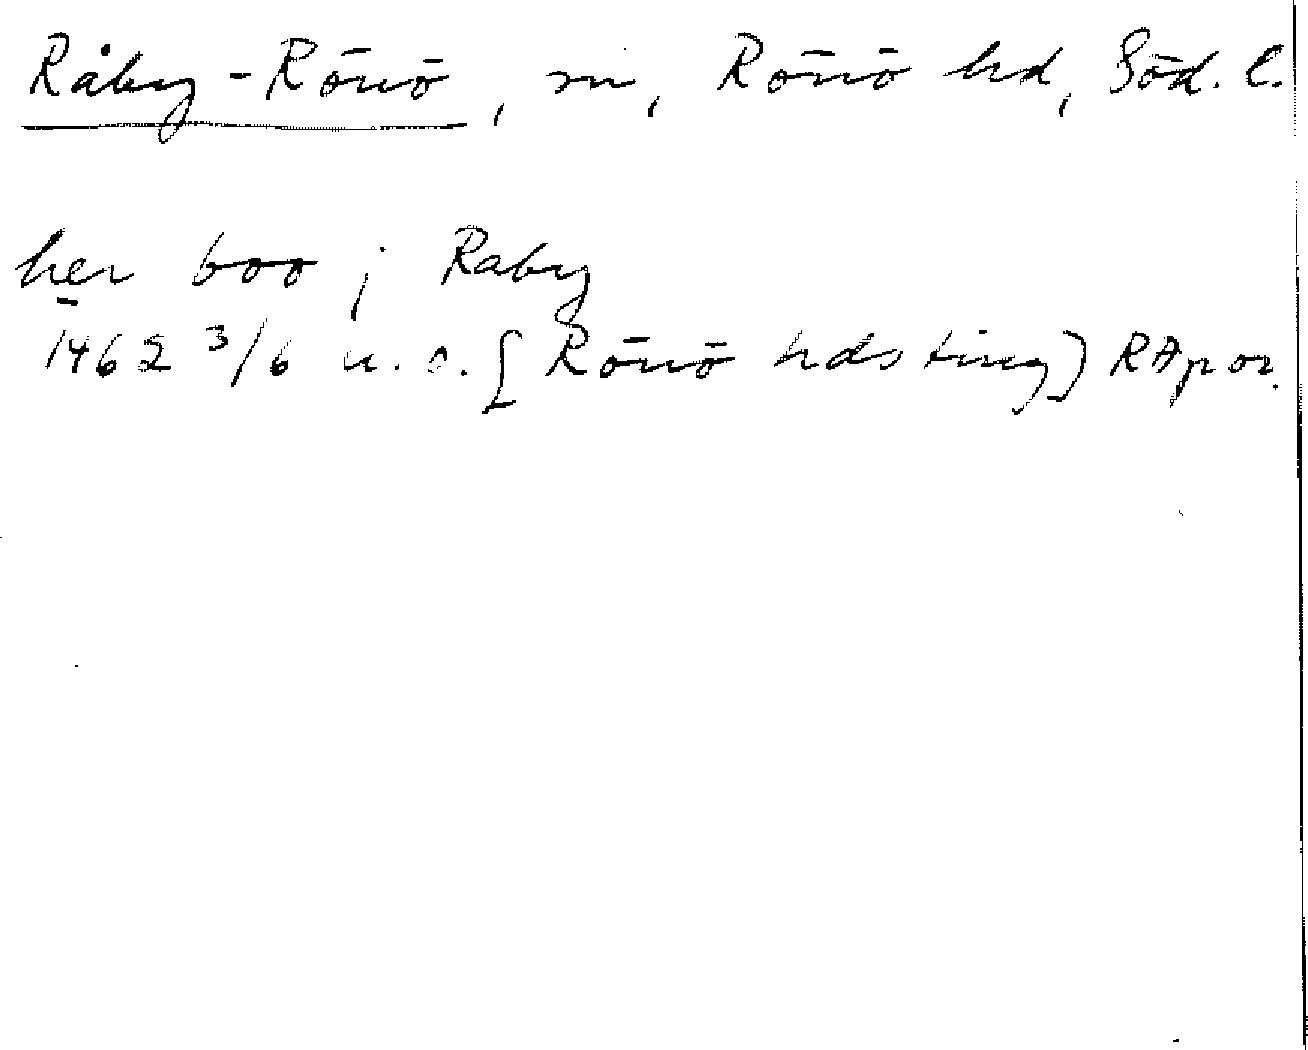 Råby-Rönö, sn, Rönö hd, Söd. l.
her boo j Raby
1462 3/6 u.o. [Rönö hds ting] RAp or.